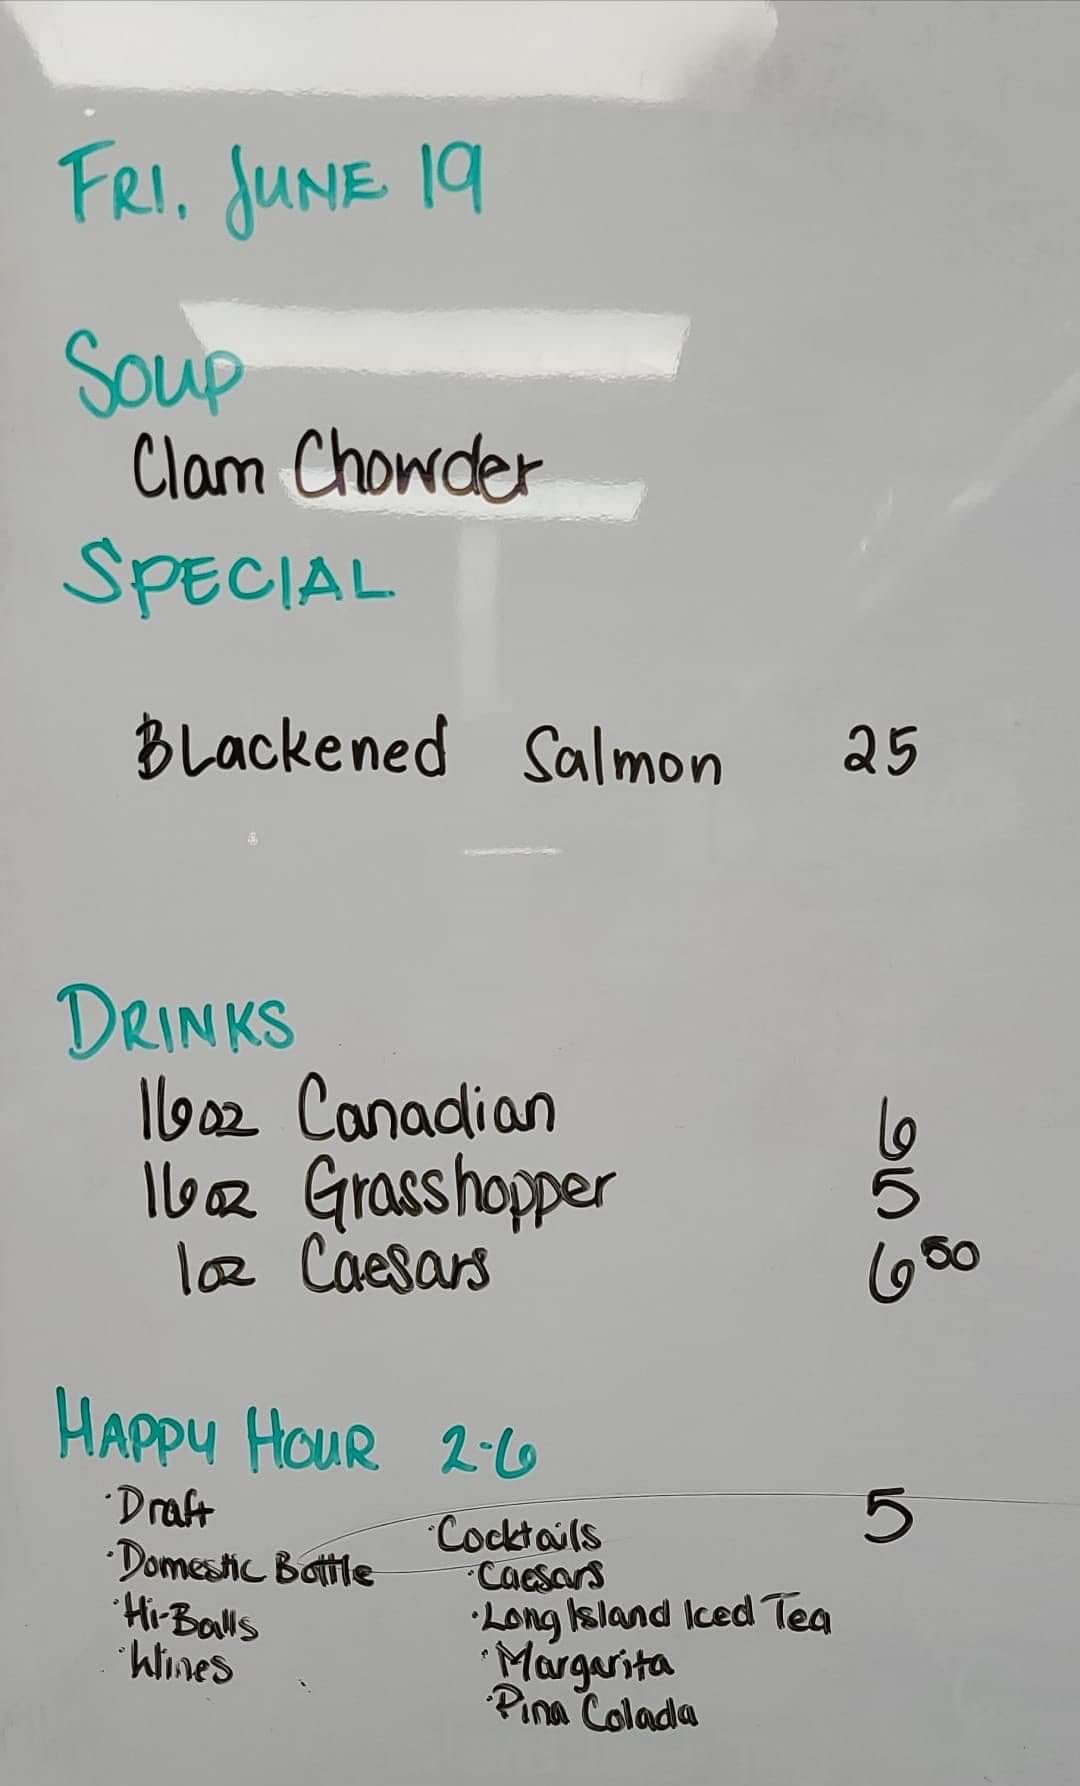 FRI. JUNE 19
Soup
Clam Chowder
SPECIAL
BLackened Salmon 25
DRINKS
16oz Canadian 6
16oz Grasshopper 5
1oz Caesars 6 50
HAPPY HOUR 2-6
·Draft 5
·Cocktails
·Domestic Bottle
·Caesars
·Hi-Balls
·Long Island Iced Tea
·Wines
·Margarita
·Pina Colada